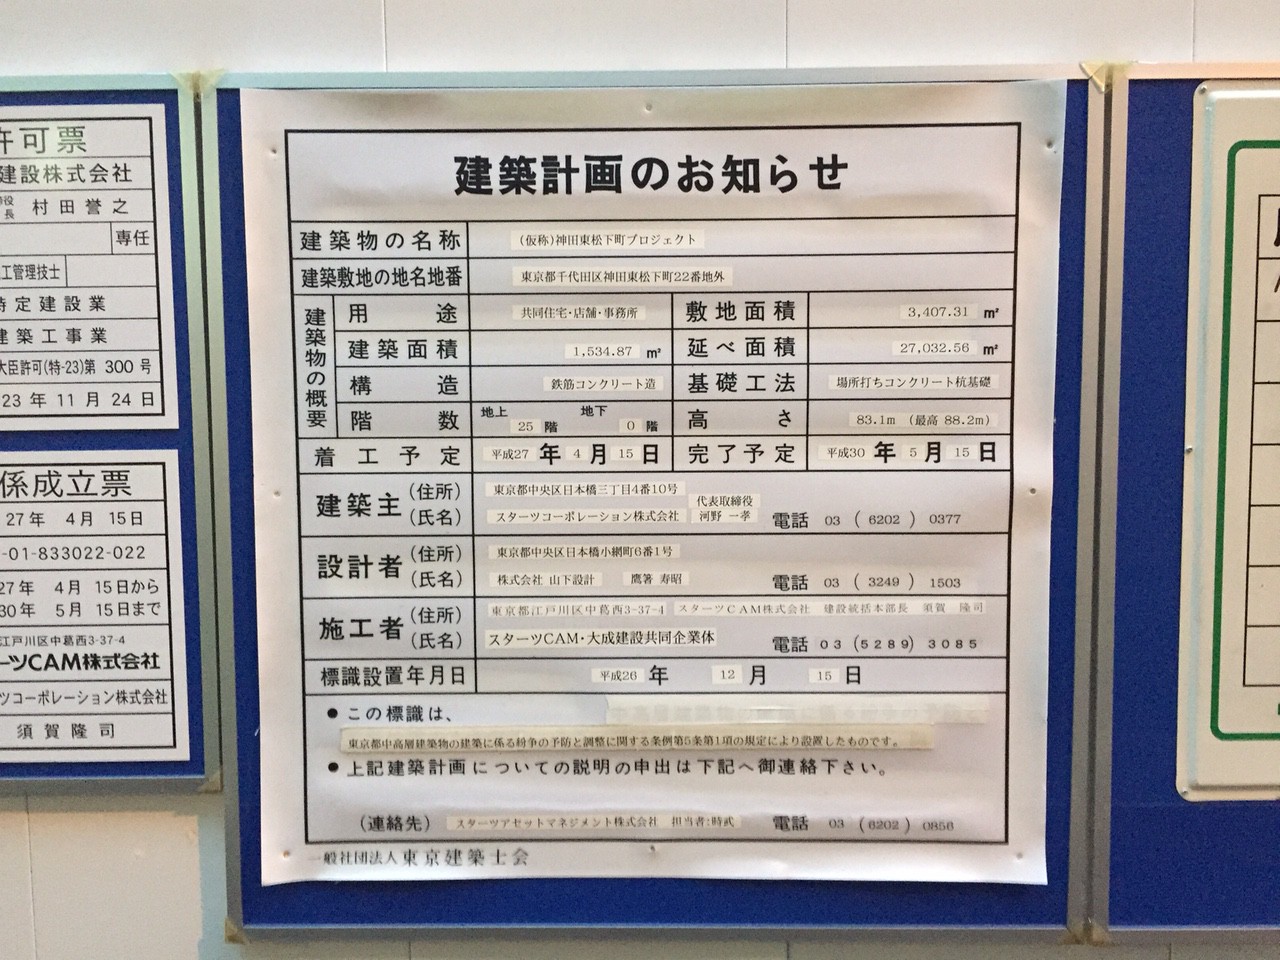 許可票
建設株式会社
村田誉之
専任
工管理技士
特定建設業
建築工事業
大臣許可(特-23)第 300 号
23 年 11 月 24 日
係成立票
27年 4月 15日
-01-833022-022
27年 4月 15日から
30年 5月 15日まで
江戸川区中葛西3-37-4
ーツCAM株式会社
ツコーポレーション株式会社
須賀隆司
建築計画のお知らせ
建築物の名称 (仮称)神田東松下町プロジェクト
建築敷地の地名地番 東京都千代田区神田東松下町22番地外
建築物の概要
用途 共同住宅・店舗・事務所 敷地面積 3,407.31 ㎡
建築面積 1,534.87 ㎡ 延べ面積 27,032.56 ㎡
構造 鉄筋コンクリート造 基礎工法 場所打ちコンクリート杭基礎
階数 地上 25 階 地下 0 階 高さ 83.1m (最高 88.2m)
着工予定 平成27 年 4 月 15 日 完了予定 平成30 年 5 月 15 日
建築主 (住所) 東京都中央区日本橋三丁目4番10号
(氏名) スターツコーポレーション株式会社 代表取締役 河野 一孝 電話 03 (6202) 0377
設計者 (住所) 東京都中央区日本橋小網町6番1号
(氏名) 株式会社 山下設計 鷹箸 寿昭 電話 03 (3249) 1503
施工者 (住所) 東京都江戸川区中葛西3-37-4 スターツCAM株式会社 建設統括本部長 須賀 隆司
(氏名) スターツCAM・大成建設共同企業体 電話 03 (5289) 3085
標識設置年月日 平成26 年 12 月 15 日
●この標識は、
東京都中高層建築物の建築に係る紛争の予防と調整に関する条例第5条第1項の規定により設置したものです。
●上記建築計画についての説明の申出は下記へ御連絡下さい。
(連絡先) スターツアセットマネジメント株式会社 担当者:時武 電話 03 (6202) 0856
一般社団法人 東京建築士会